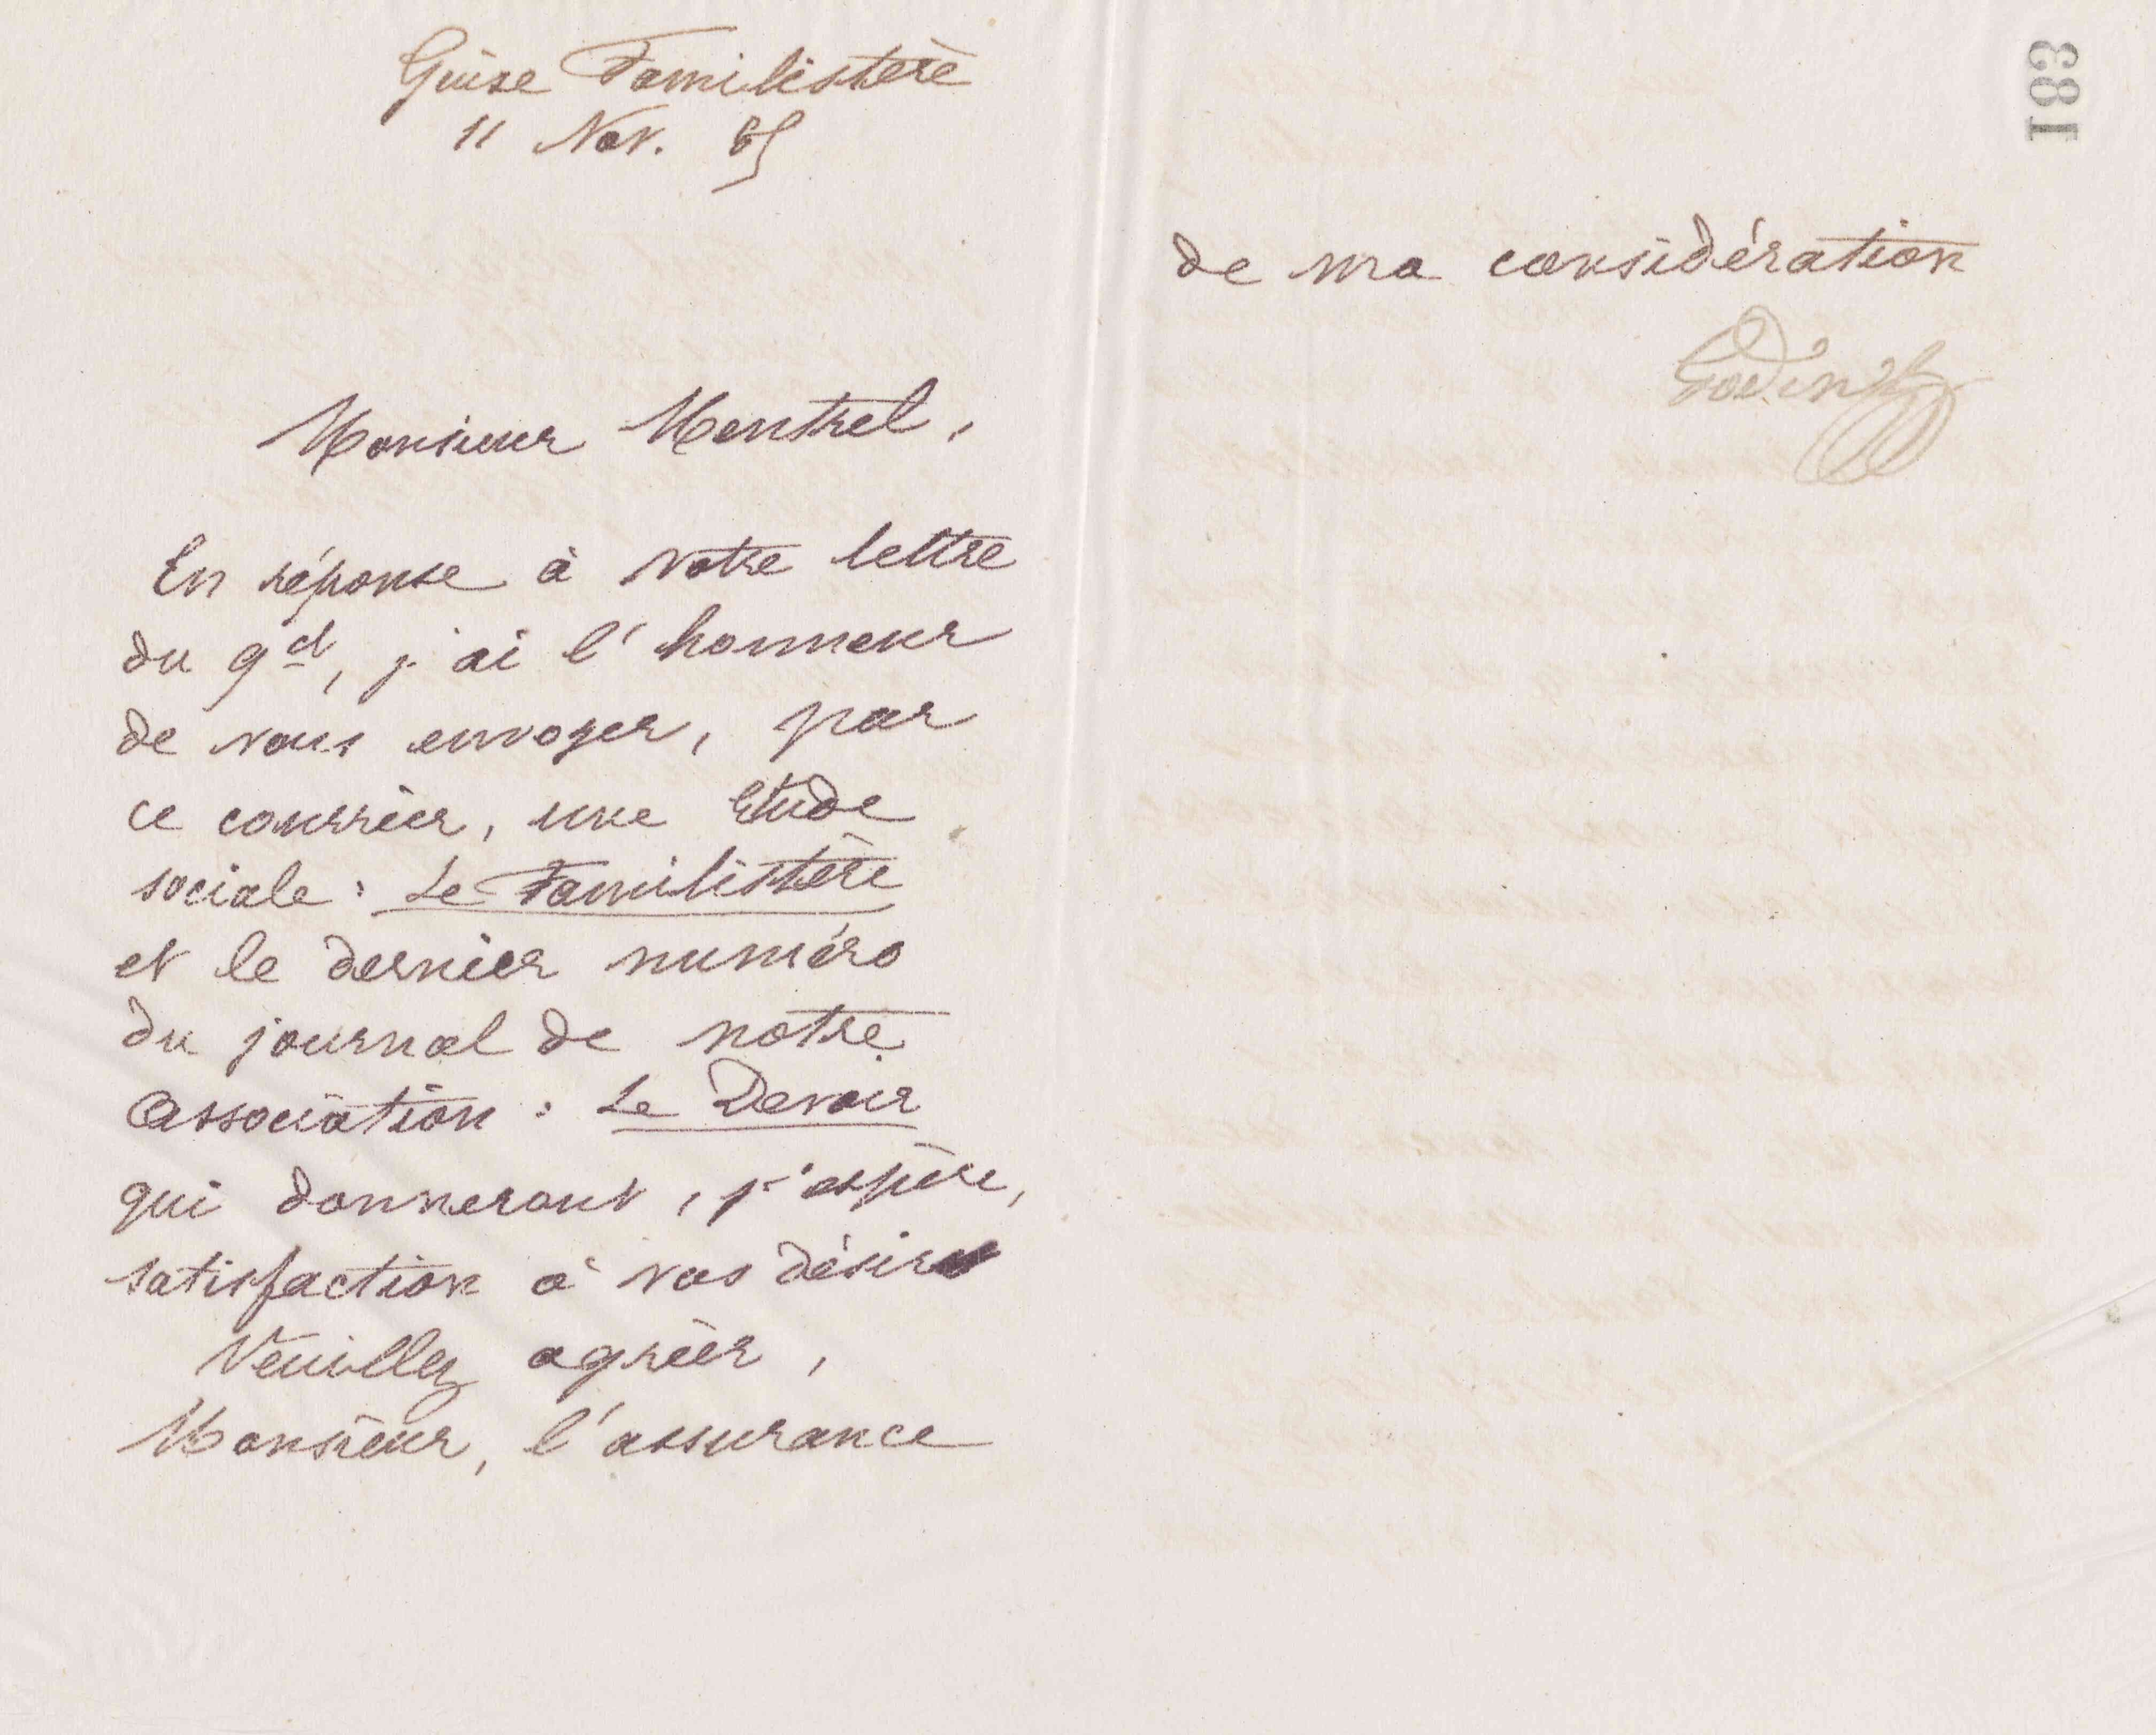 Guise Familistère
11 Nov. 85
Monsieur Mentrel,
En réponse à votre lettre
du 9 ct, j'ai l'honneur
de vous envoyer, par
ce courrier, une Etude
sociale : Le Familistère
et le dernier numéro
du journal de notre
Association : Le Devoir
qui donneront, j'espère,
satisfaction à vos désirs
Veuillez agréer,
Monsieur, l'assurance
183
de ma considération
Godin